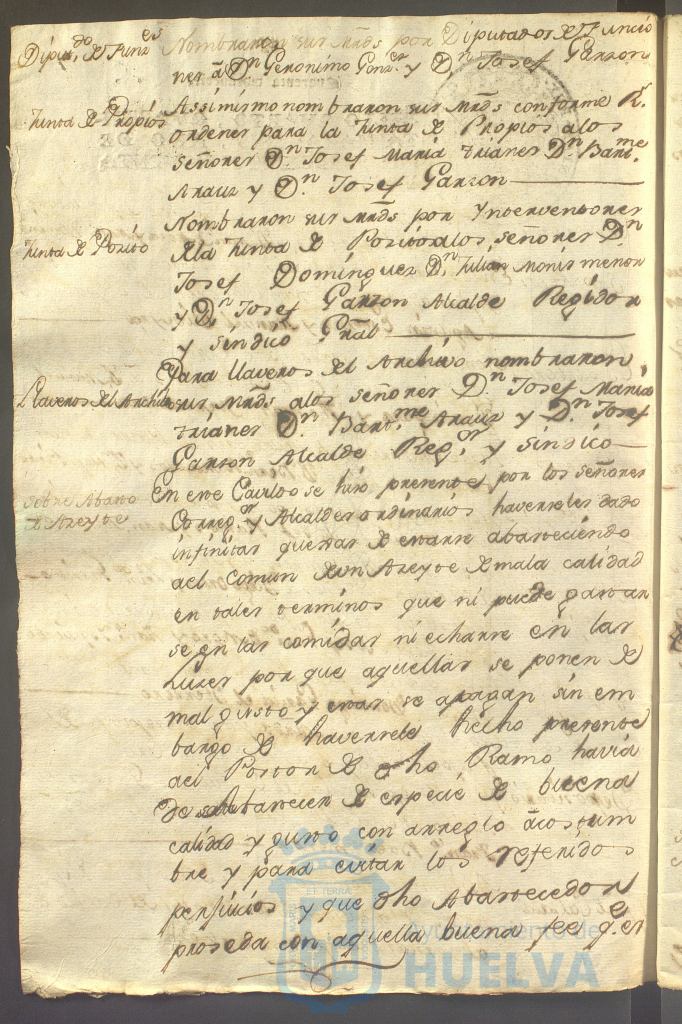 Diput.do de Funz.es
Nombraron sus mrds por Diputados de Funcio
nes a Dn Geronimo Gonz.z y Dn Josef Garzon
Junta de Propios
Assimismo nombraron sus mrds conforme R.
ordenes para la Junta de Propios alos
señores Dn Josef Maria Trianes Dn Bar.me
Arauz y Dn Josef Garzon
Junta de Posito
Nombraron sus mrds por Ynterventores
dela Junta de Posito alos señores Dn
Josef Domínguez Dn Julian Monis menor
y Dn Josef Garzon Alcalde Regidor
y sindico Gral
Llaveros del Archivo
Para llaveros del Archivo nombraron
sus mrds alos señores Dn Josef Maria
Trianes Dn Bart.me Arauz y Dn Josef
Garzon Alcalde Reg.or y sindico
Sobre Abasto
de Azeyte
En este Cavildo se hizo presente por los señores
Correg.or y Alcaldes ordinarios haverseles dado
infinitas quexas de estarse abasteciendo
del comun de un Azeyte de mala calidad
en tales terminos que ni puede gastar
se en las comidas ni echarse en las
Luzes por que aquellas se ponen de
mal gusto y estas se apagan sin em
bargo de haversele hecho presente
del Postor de dho Ramo havia
de abastecer de especie de buena
calidad y gusto con arreglo a costum
bre y para evitar los referidos
perjuicios y que dho Abastecedor
proseda con aquella buena fee q.e es
Ayuntamiento de
HUELVA